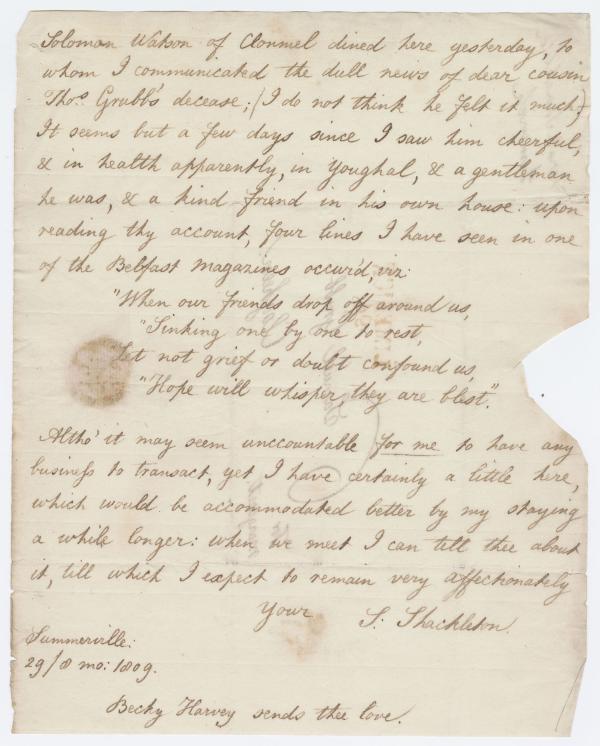 Soloman Watson of Clonmel dined here yesterday, to
whom I communicated the dull news of dear cousin
Thos. Grubb's decease; (I do not think he felt it much)
It seems but a few days since I saw him cheerful,
& in health apparently, in Youghal, & a gentleman
he was, & a kind friend in his own house: upon
reading thy account, four lines I have seen in one
of the Belfast Magazines occur'd, viz:
"When our friends drop off around us,
"Sinking one by one to rest,
Let not grief or doubt confound us,
"Hope will whisper, they are blest".
Altho' it may seem unccountable for me to have any
business to transact, yet I have certainly a little here,
which would be accommodated better by my staying
a while longer: when we meet I can tell thee about
it, till which I expect to remain very affectionately
Your S: Shackleton.
Summerville:
29/8 mo: 1809.
Becky Harvey sends thee love.